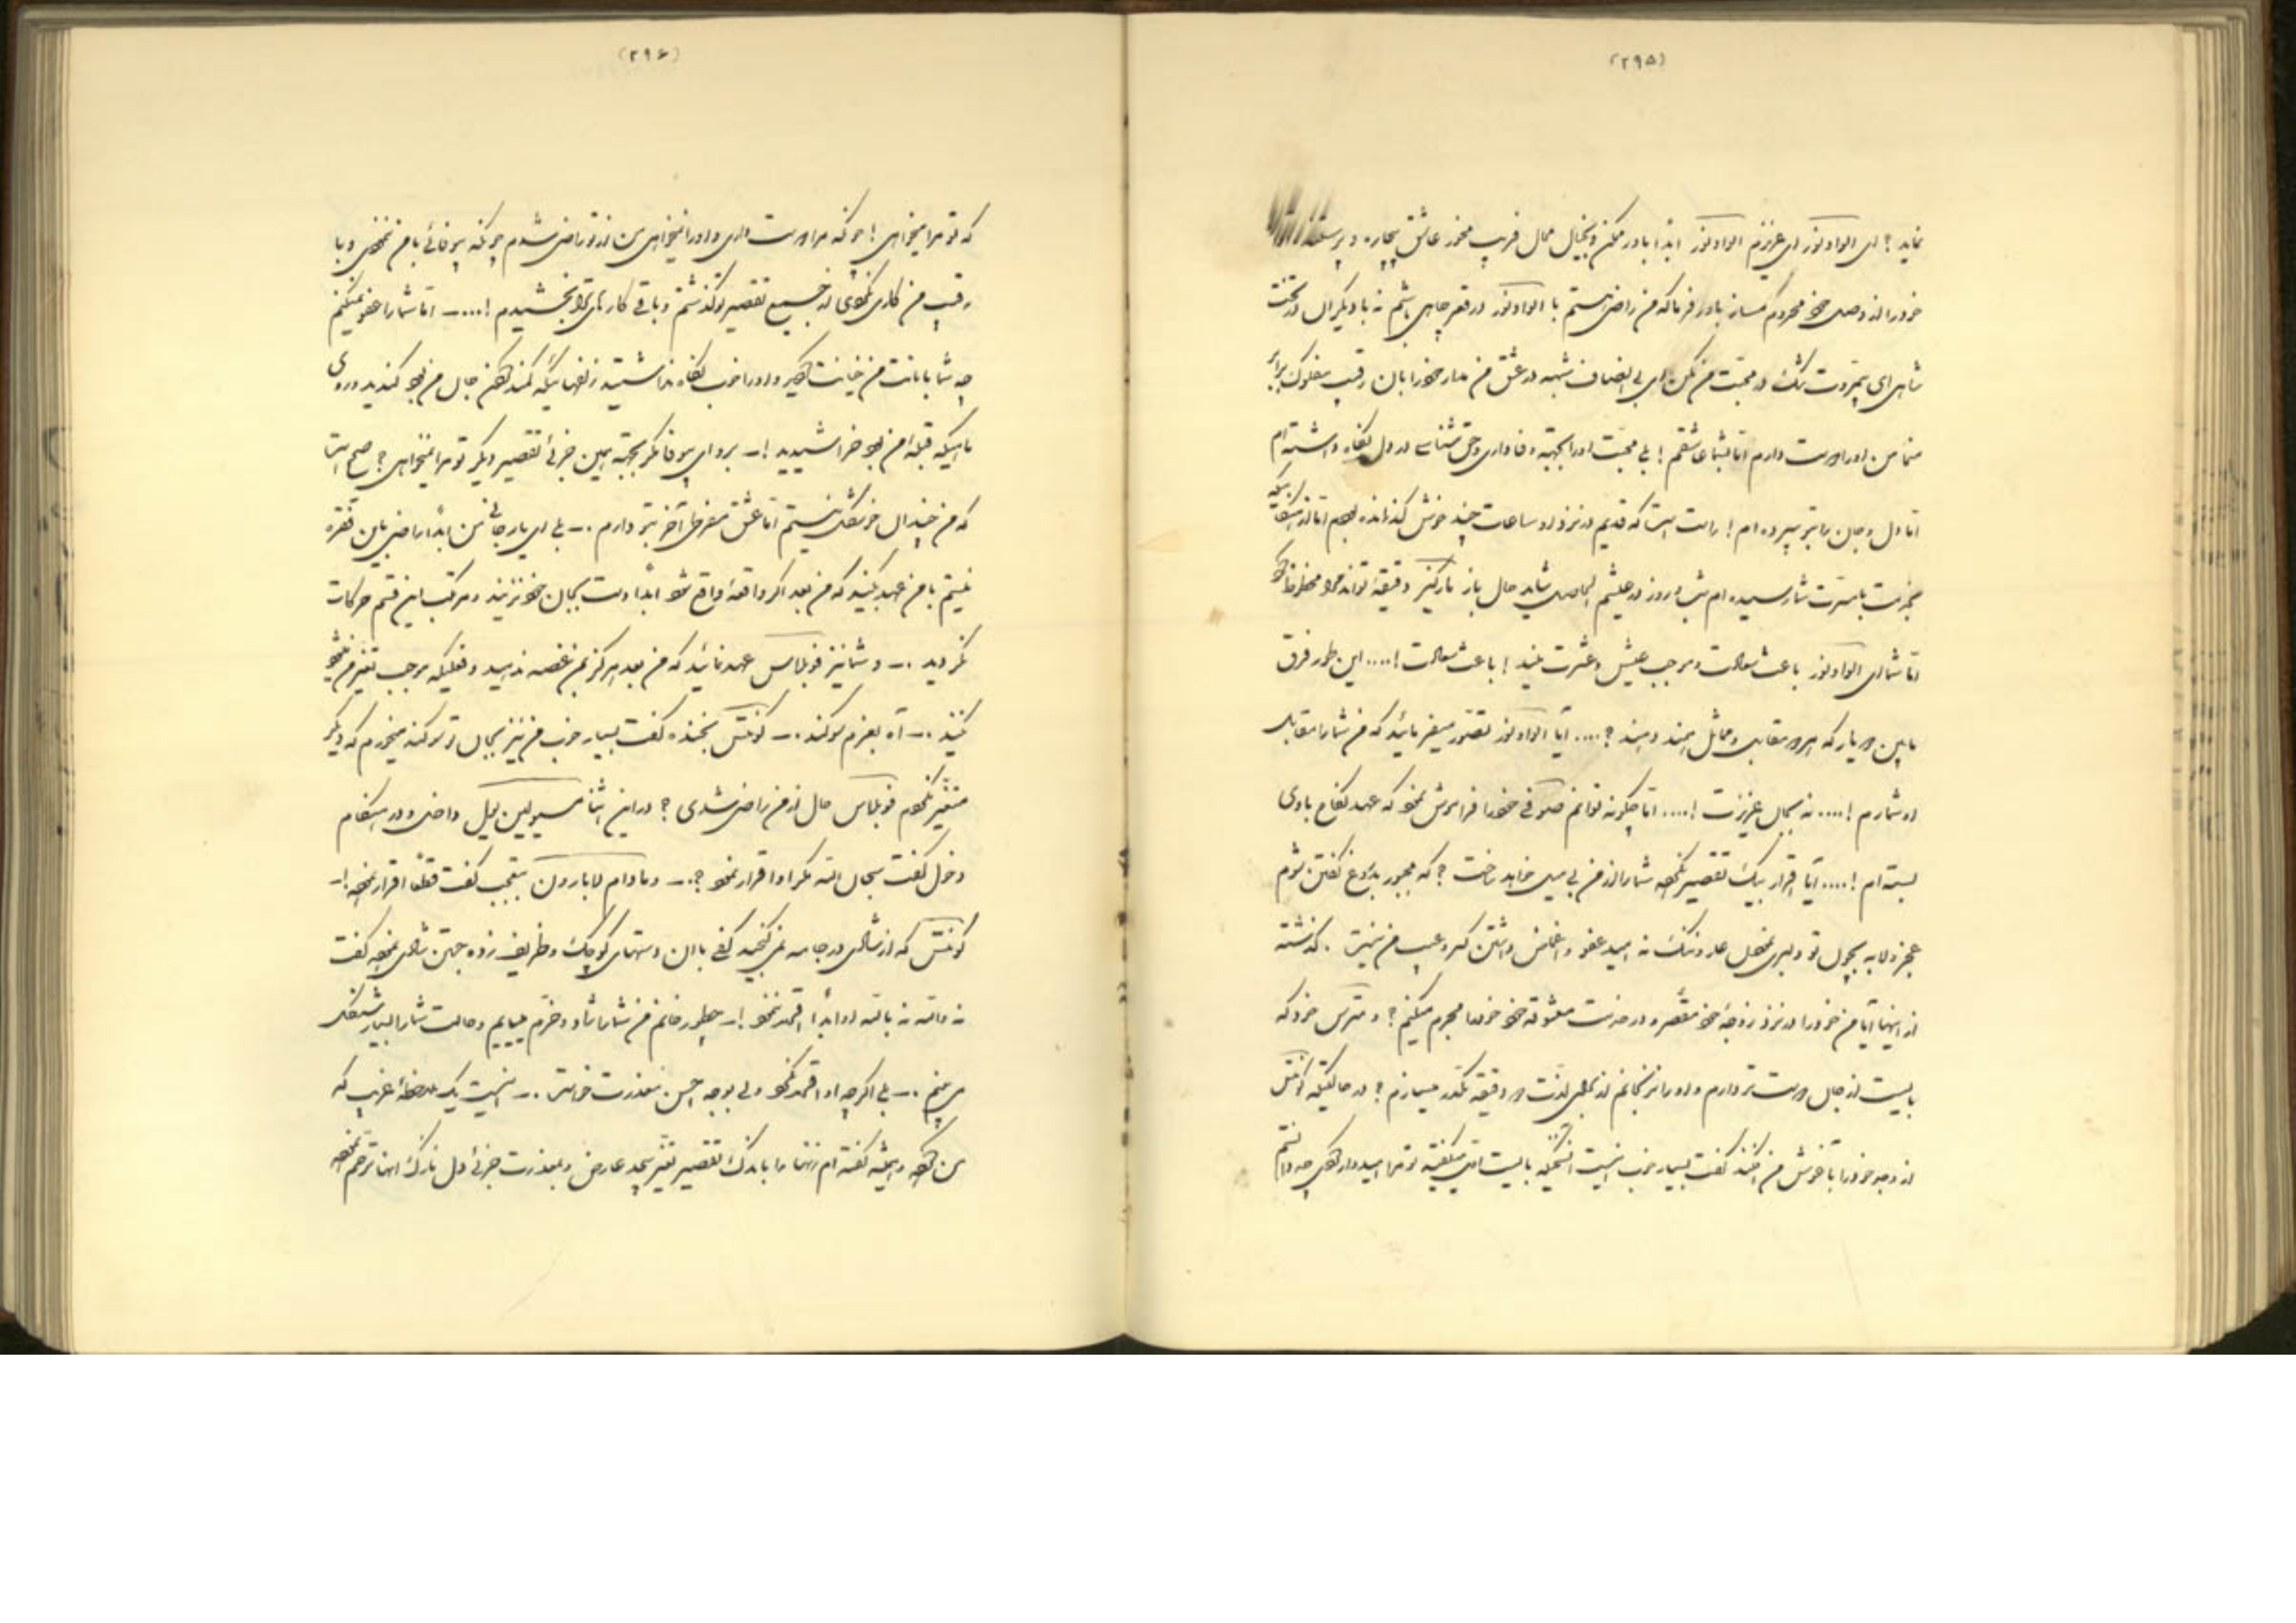 (۲۹۵)
نماید؟ ای الوادنور ای عزیزم الوادنور ابداً باور مکن و بخیال محال فریب مخور عاشق بیچاره و پرستنده
خود را از وصل خود محروم مساز باور فرما که من راضی هستم با الوادنور در قعر چاهی باشم نه با دیگران در تخت
شاهی ای بیمروت شک در محبت من مکن ای بی انصاف شبهه در عشق من مدار خود را بآن رقیب مفلوک برابر
من او را دوست دارم اما بشما عاشقم! بلی محبت او را بجهته وفاداری و حق شناسی در دل نگاه داشته ام
اما دل و جان را بتو سپرده ام! راست است که قدیم در نزد او ساعات چند خوش گذرانده بودم اما از هنگامیکه
بخدمت با مسرت شما رسیده ام شب و روز در عیشم
اما شما ای الوادنور باعث سعادت و موجب عیش و عشرت منید! باعث سعادت!.... این طور فرق
مابین دو یار که هر دو مقابل و مماثل همند دهند؟.... آیا الوادنور تصور میفرمائید که من شما را مقابل
او شمارم!.... نه بجان عزیزت!.... اما چگونه توانم حقوق خود را فراموش نمود که عهد نکاح با وی
بسته ام!.... آیا اقرار بیک تقصیر نکرده شما را از من بی میل خواهد ساخت؟ که مجبور بدروغ گفتن شوم
عجز و لابه بچون تو دلبری عار و ننگ نه امید عفو و اغماض داشتن کسر و عیب من نیست. گذشته
از اینها آیا من خود را در نزد زوجه خود مقصر و در خدمت معشوقه خود خود را مجرم میکنم؟ و مترس خود که
بایست از جان دوست تر دارم و او را نرنجانم از بعضی لذت دو دقیقه مکدر میسازم؟ در حالتیکه کونتس
از وجد خود را بآغوش من افکند گفت بسیار خوب اینست آنچه که بایست بمن میگفتید تو مرا امیدوار کن چه دانستم
(۲۹۶)
که تو مرا میخواهی! چونکه مرا دوست داری و او را نمیخواهی من از تو راضی شدم چونکه بیوفائی با من ننمودی و با
رقیب من کاری نکردی از جمیع تقصیر تو گذشتم و باقی کارهای ترا بخشیدم!.... اما شما را عفو نمیکنم
چه شما بامانت من خیانت کردید و او را خوب نگاه نداشتید زلفهائیکه کمند گردن جان من بود کندید و روی
ماهیکه قبله من بود خراشیدید!ـ برو ای بیوفا مگر بجهته همین جزئی تقصیر دیگر تو مرا نمیخواهی؟ صحیح است
که من چندان خوشگل نیستم اما عشق مفرطی آخر بتو دارم.ـ بلی ای یار جانی من ابداً راضی باین فقره
نیستم با من عهد بکنید که من بعد اگر واقعه واقع شود ابداً دست بجان خود نزنید و مرتکب این قسم حرکات
نگردید.ـ و شما نیز فوبلاس عهد نمائید که من بعد هرگز بمن غصه ندهید و فعلیکه موجب تغیر من شود
نکنید.ـ آه بعزم سوگند.ـ کونتس بخنده گفت بسیار خوب من نیز بجان تو سوگند میخورم که دیگر
متغیر نگردم فوبلاس حال از من راضی شدی؟ در این اثنا مسیو لبن بیل داخل و در هنگام
دخول گفت سبحان الله مگر او اقرار نمود؟.ـ و مادام لابارون بتعجب گفت قطعاً اقرار نموده!ـ
کونتس که از شادی در جامه نمی گنجید کفی با آن دستهای کوچک و ظریف زده بجهتن شادی نموده گفت
نه والله نه بالله او ابداً اقرار ننمود!ـ چطور خانم من شما را شاد و خرم مییابم و حالت شما را بسیار شنگل
می بینم.ـ بلی اگرچه او اقرار نکرد ولی بوجه احسن معذرت خواست.ـ اینست یک ملاحظه غریب که
من کرده و همیشه گفته ام زنها را باندک تقصیر تغییر بیحد عارض و بمعذرت جزئی دل نازک آنها ترحم نموده